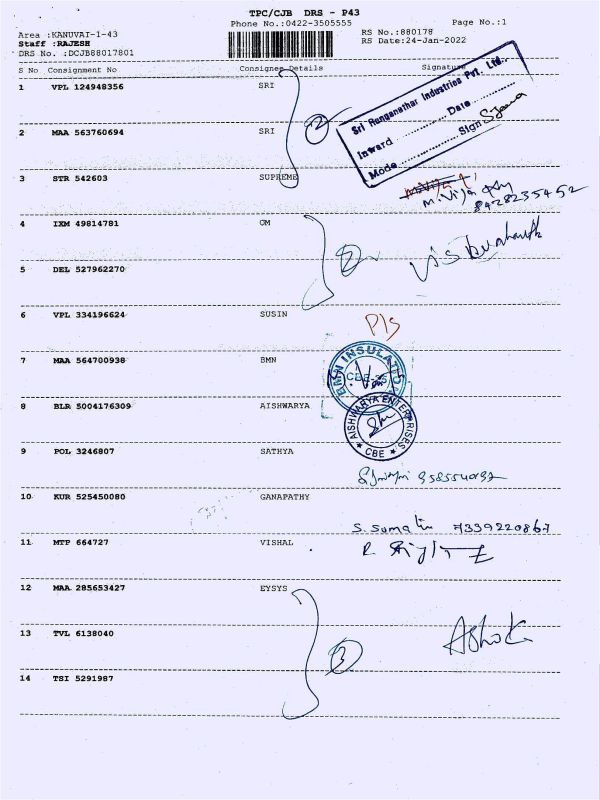 TPC/CJB DRS - P43
Phone No.:0422-3505555
Page No.:1
Area :KANUVAI-1-43
RS No.:880178
Staff :RAJESH
RS Date:24-Jan-2022
DRS No. :DCJB88017801
S No Consignment No Consignee Details Signature
1 VPL 124948356 SRI
2
Sri Ranganathar Industries Pvt. Ltd.,
Inward Date
Mode Sign
2 MAA 563760694 SRI
3 STR 542603 SUPREME
M. Vijay
8428235452
4 IXM 49814781 OM
2
5 DEL 527962270
6 VPL 334196624 SUSIN
Pls
7 MAA 564700938 BMN
BMN INSULATIO
CBE-25
8 BLR 5004176309 AISHWARYA
AISHWARYA ENTERPRISES
CBE
9 POL 3246807 SATHYA
10 KUR 525450080 GANAPATHY
S. Suma 7339220867
11 MTP 664727 VISHAL
12 MAA 285653427 EYSYS
13 TVL 6138040
Ashok
3
14 TSI 5291987